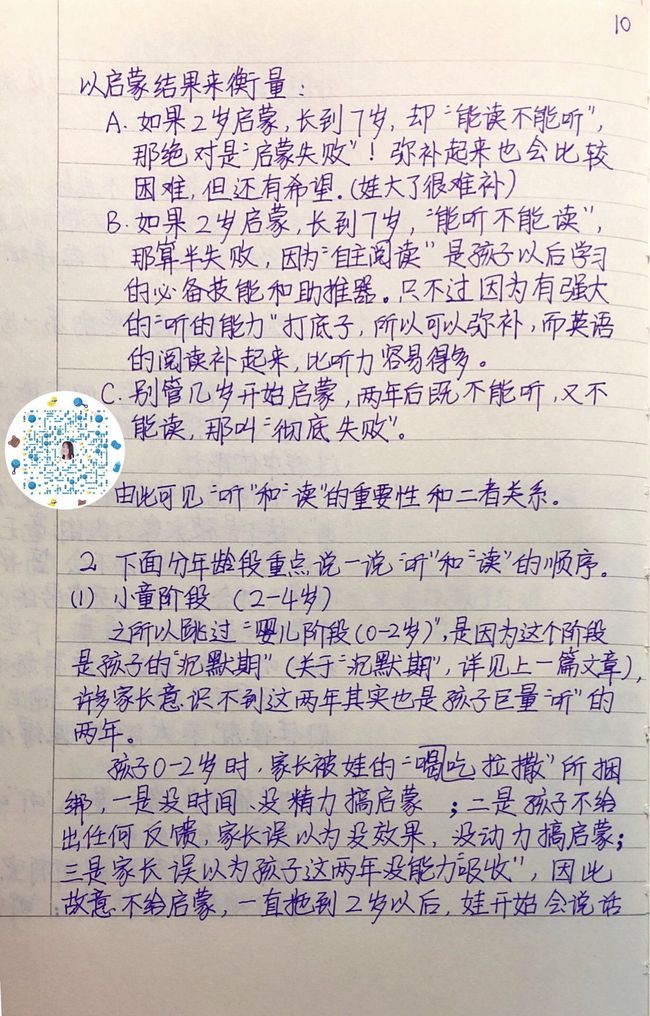 10
以启蒙结果来衡量：
A. 如果2岁启蒙，长到7岁，却“能读不能听”，
那绝对是“启蒙失败”！弥补起来也会比较
困难，但还有希望。（娃大了很难补）
B. 如果2岁启蒙，长到7岁，“能听不能读”，
那算半失败，因为“自主阅读”是孩子以后学习
的必备技能和助推器。只不过因为有强大
的“听的能力”打底子，所以可以弥补，而英语
的阅读补起来，比听力容易得多。
C. 别管几岁开始启蒙，两年后既不能听，又不
能读，那叫“彻底失败”。
由此可见“听”和“读”的重要性和二者关系。
2. 下面分年龄段重点说一说“听”和“读”的顺序。
(1) 小童阶段（2-4岁）
之所以跳过“婴儿阶段(0-2岁)”，是因为这个阶段
是孩子的“沉默期”（关于“沉默期”，详见上一篇文章），
许多家长意识不到这两年其实也是孩子巨量“听”的
两年。
孩子0-2岁时，家长被娃的“喝吃拉撒”所捆
绑，一是没时间、没精力搞启蒙；二是孩子不给
出任何反馈，家长误以为没效果，没动力搞启蒙；
三是家长误以为孩子这两年没能力“吸收”，因此
故意不给启蒙，一直拖到2岁以后，娃开始会说话